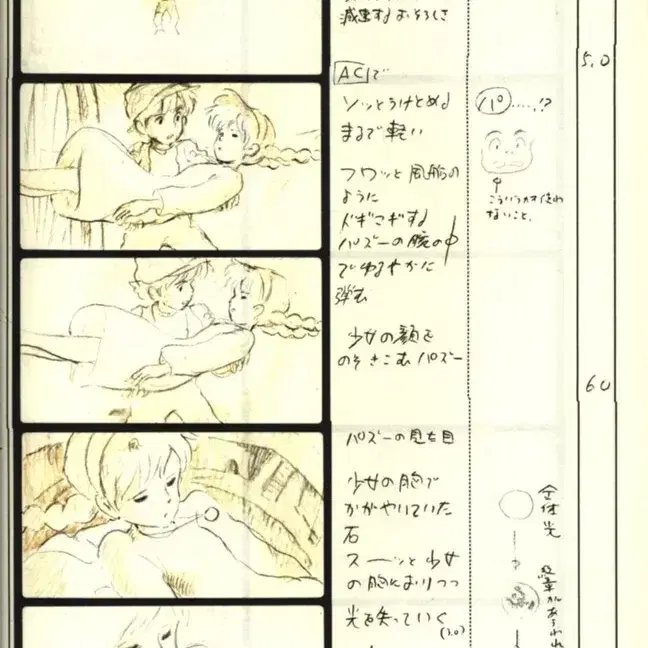 減速するおそろしさ
5.0
ACで
ソッとうけとめる
まるで軽い
フワッと風船の
ように
ドギマギする
パズーの腕の中
でゆるやかに
弾む
パ……!?
こういうカオ使わ
ないこと、
少女の顔を
のぞきこむパズー
6.0
パズーの見た目
少女の胸で
かがやいていた
石
スーッと少女
の胸におりつつ
光を失っていく
(3.0)
全体光
紋章があらわれ